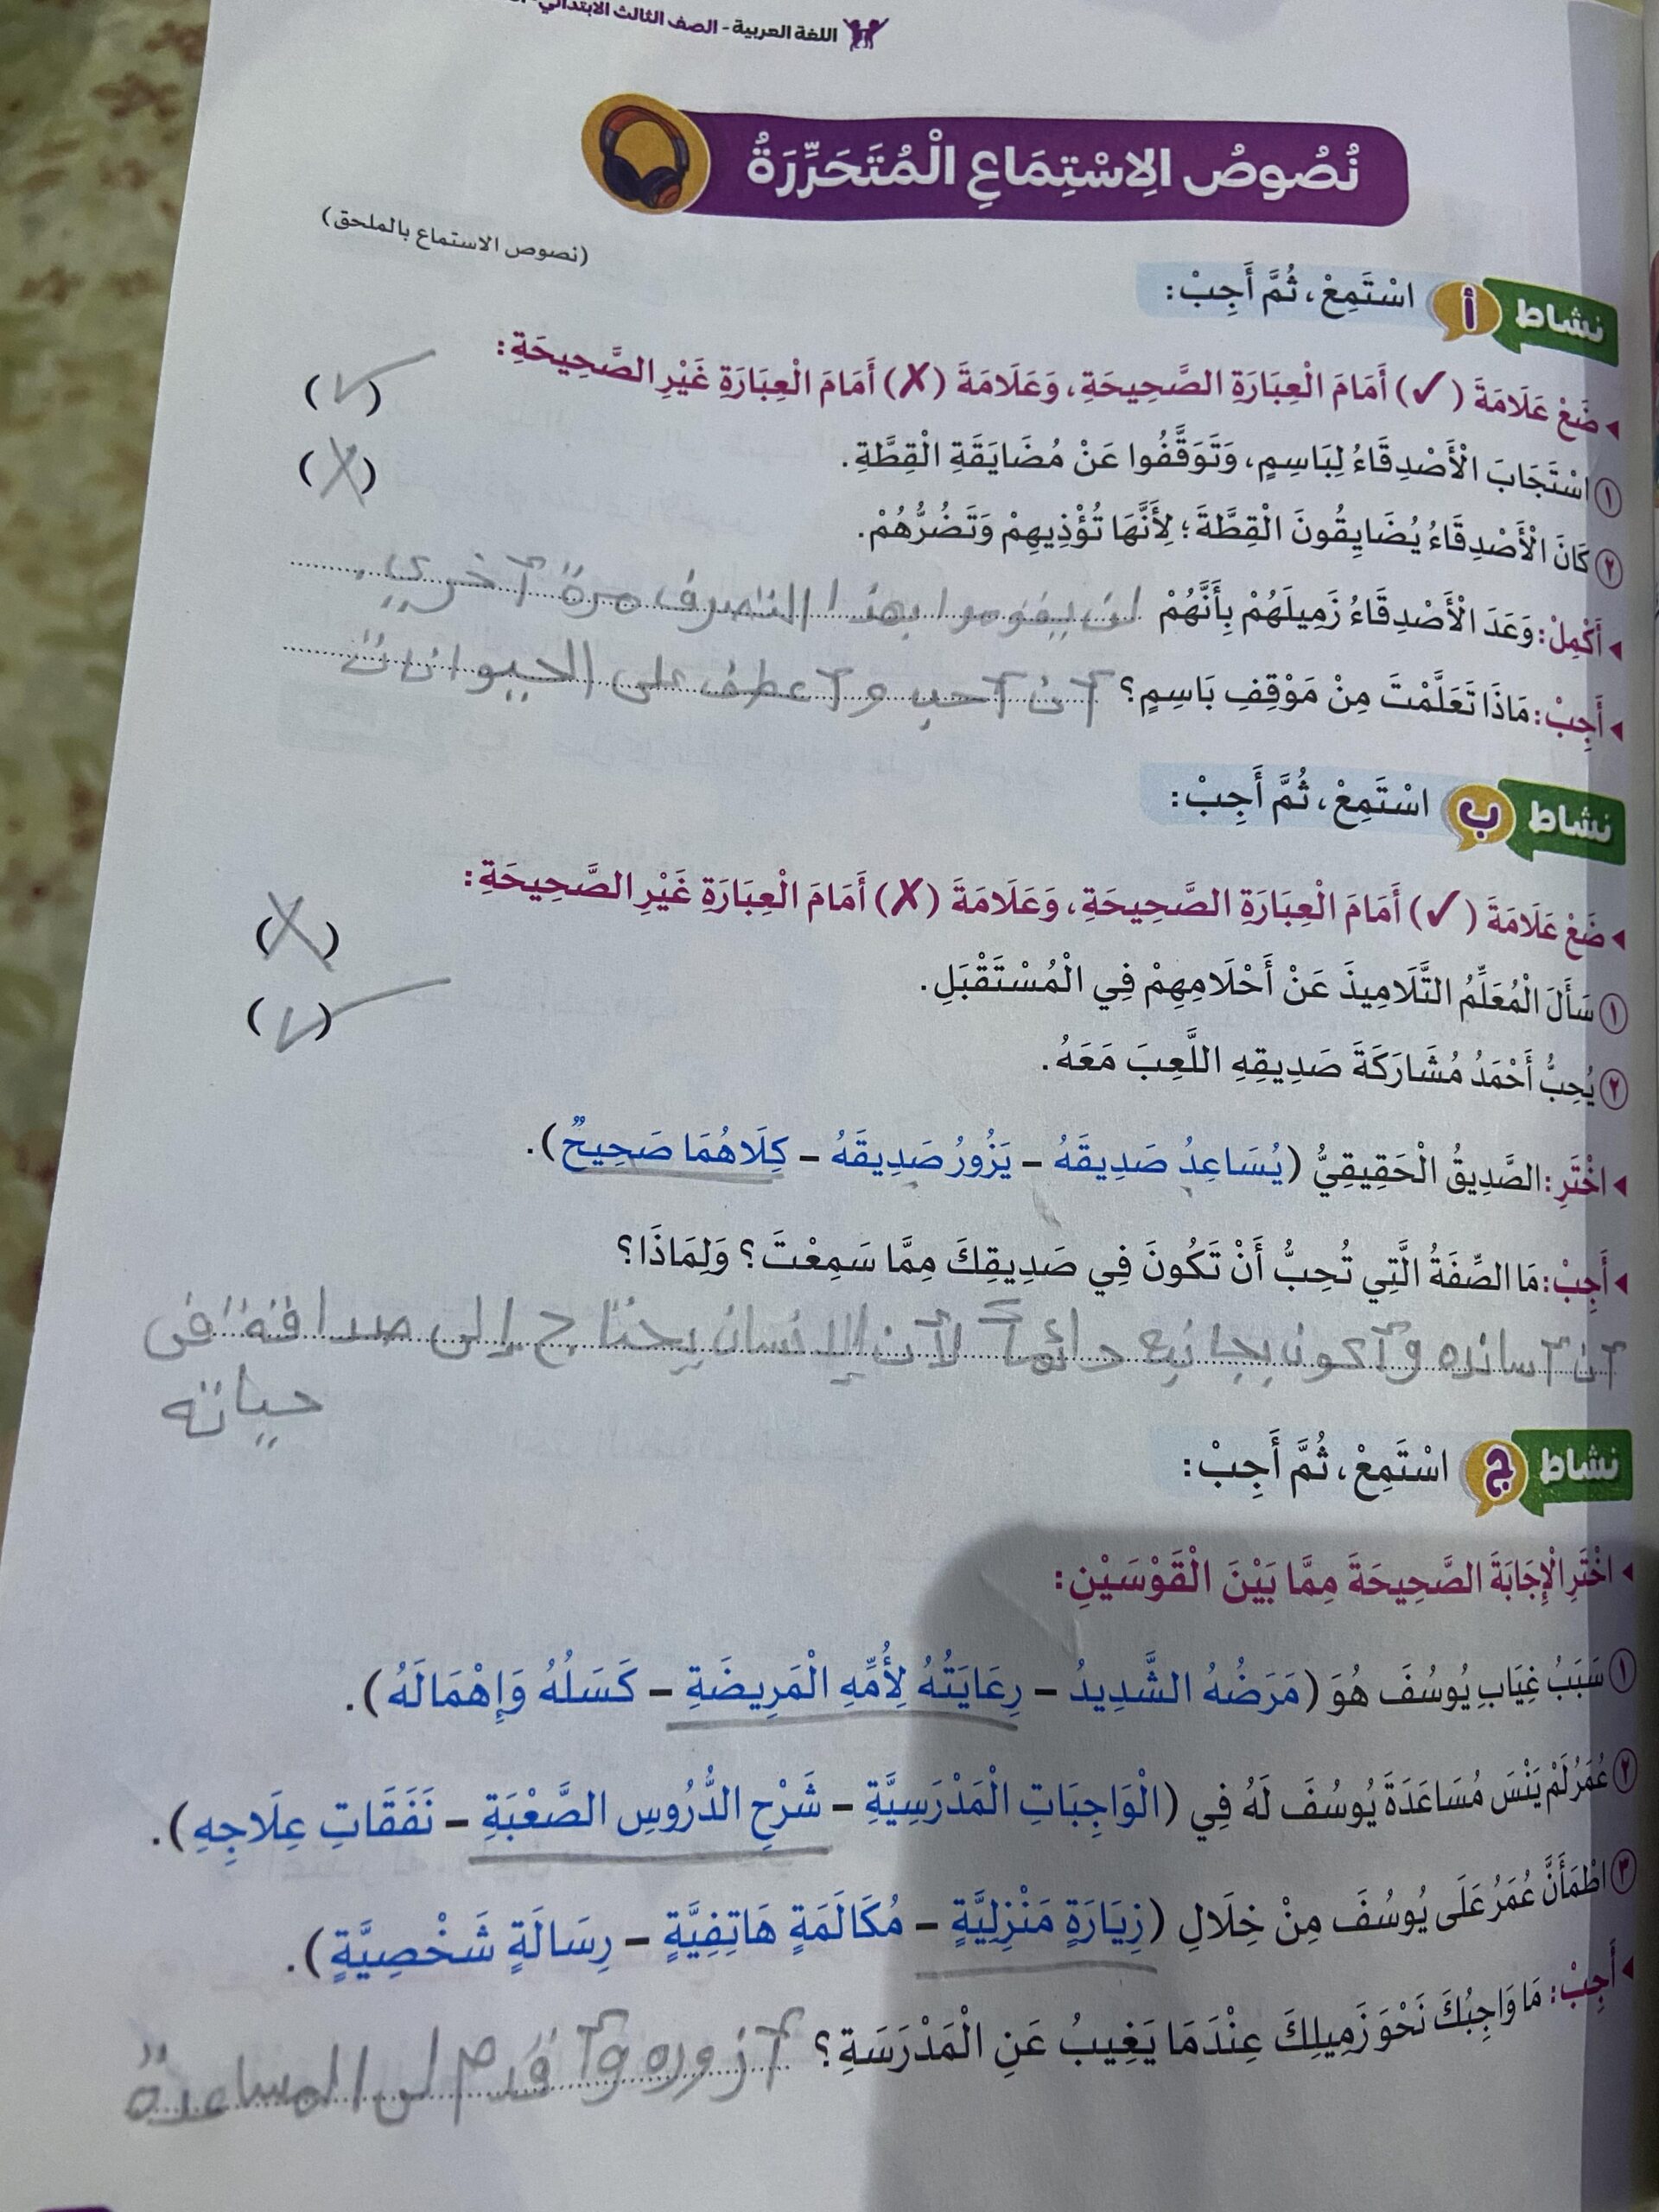 اللغة العربية - الصف الثالث الابتدائي -
نُصُوصُ الِاسْتِمَاعِ الْمُتَحَرِّرَةُ
(نصوص الاستماع بالملحق)
نشاط أ اسْتَمِعْ، ثُمَّ أَجِبْ:
◂ ضَعْ عَلَامَةَ (✓) أَمَامَ الْعِبَارَةِ الصَّحِيحَةِ، وَعَلَامَةَ (✗) أَمَامَ الْعِبَارَةِ غَيْرِ الصَّحِيحَةِ:
١ اسْتَجَابَ الْأَصْدِقَاءُ لِبَاسِمٍ، وَتَوَقَّفُوا عَنْ مُضَايَقَةِ الْقِطَّةِ. (✓)
٢ كَانَ الْأَصْدِقَاءُ يُضَايِقُونَ الْقِطَّةَ؛ لِأَنَّهَا تُؤْذِيهِمْ وَتَضُرُّهُمْ. (✗)
◂ أَكْمِلْ: وَعَدَ الْأَصْدِقَاءُ زَمِيلَهُمْ بِأَنَّهُمْ لن يقوموا بهذا التصرف مرة أخرى.
◂ أَجِبْ: مَاذَا تَعَلَّمْتَ مِنْ مَوْقِفِ بَاسِمٍ؟ أن أحب و أعطف على الحيوانات
نشاط ب اسْتَمِعْ، ثُمَّ أَجِبْ:
◂ ضَعْ عَلَامَةَ (✓) أَمَامَ الْعِبَارَةِ الصَّحِيحَةِ، وَعَلَامَةَ (✗) أَمَامَ الْعِبَارَةِ غَيْرِ الصَّحِيحَةِ:
١ سَأَلَ الْمُعَلِّمُ التَّلَامِيذَ عَنْ أَحْلَامِهِمْ فِي الْمُسْتَقْبَلِ. (✗)
٢ يُحِبُّ أَحْمَدُ مُشَارَكَةَ صَدِيقِهِ اللَّعِبَ مَعَهُ. (✓)
◂ اخْتَرِ: الصَّدِيقُ الْحَقِيقِيُّ (يُسَاعِدُ صَدِيقَهُ – يَزُورُ صَدِيقَهُ – كِلَاهُمَا صَحِيحٌ).
◂ أَجِبْ: مَا الصِّفَةُ الَّتِي تُحِبُّ أَنْ تَكُونَ فِي صَدِيقِكَ مِمَّا سَمِعْتَ؟ وَلِمَاذَا؟
أن أسانده و أكون بجانبه دائماً لأن الإنسان يحتاج إلى صداقة فى
حياته
نشاط ج اسْتَمِعْ، ثُمَّ أَجِبْ:
◂ اخْتَرِ الْإِجَابَةَ الصَّحِيحَةَ مِمَّا بَيْنَ الْقَوْسَيْنِ:
١ سَبَبُ غِيَابِ يُوسُفَ هُوَ (مَرَضُهُ الشَّدِيدُ – رِعَايَتُهُ لِأُمِّهِ الْمَرِيضَةِ – كَسَلُهُ وَإِهْمَالَهُ).
٢ عُمَرُ لَمْ يَنْسَ مُسَاعَدَةَ يُوسُفَ لَهُ فِي (الْوَاجِبَاتِ الْمَدْرَسِيَّةِ – شَرْحِ الدُّرُوسِ الصَّعْبَةِ – نَفَقَاتِ عِلَاجِهِ).
٣ اطْمَأَنَّ عُمَرُ عَلَى يُوسُفَ مِنْ خِلَالِ (زِيَارَةٍ مَنْزِلِيَّةٍ – مُكَالَمَةٍ هَاتِفِيَّةٍ – رِسَالَةٍ شَخْصِيَّةٍ).
◂ أَجِبْ: مَا وَاجِبُكَ نَحْوَ زَمِيلِكَ عِنْدَمَا يَغِيبُ عَنِ الْمَدْرَسَةِ؟ أزوره و أقدم لى المساعدة